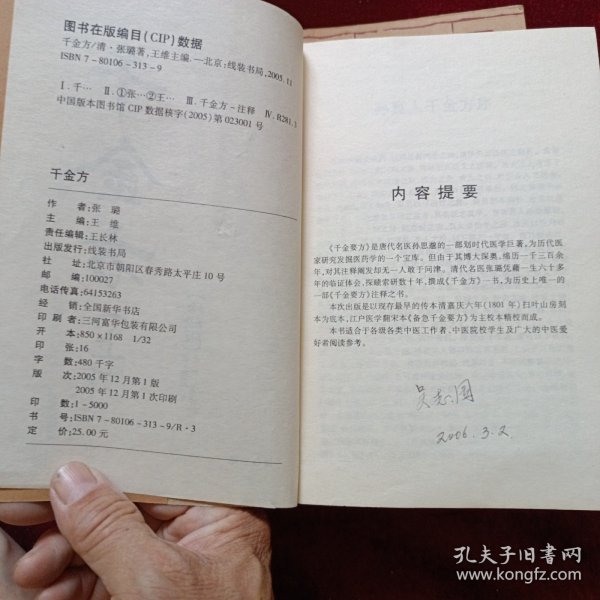 图书在版编目(CIP)数据
千金方/清·张璐著,王维主编.—北京:线装书局,2005.11
ISBN 7-80106-313-9
Ⅰ.千… Ⅱ.①张…②王… Ⅲ.千金方-注释 Ⅳ.R281.3
中国版本图书馆 CIP 数据核字(2005)第 023001 号
千金方
作 者:张 璐
主 编:王 维
责任编辑:王长林
出版发行:线装书局
社 址:北京市朝阳区春秀路太平庄10号
邮 编:100027
电话传真:64153263
经 销:全国新华书店
印 刷 者:三河富华包装有限公司
开 本:850×1168 1/32
印 张:16
字 数:480千字
版 次:2005年12月第1版
2005年12月第1次印刷
印 数:1-5000
书 号:ISBN 7-80106-313-9/R·3
定 价:25.00元
内容提要
《千金要方》是唐代名医孙思邈的一部划时代医学巨著,为历代医
家研究发掘医药学的一个宝库。但由于其博大深奥,络历一千三百余
年,对其注释阐发却无一人敢于问津。清代名医张璐凭藉一生六十多
年的临证体会,探赜索研数十年,撰成《千金方》一书,为历史上唯一的
一部《千金要方》注释之书。
本次出版是以现存最早的传本清嘉庆六年(1801年)扫叶山房刻
本为底本,江户医学翻宋本《备急千金要方》为主校本精校而成。
本书适合于各级各类中医工作者,中医院校学生及广大的中医爱
好者阅读参考。
吴志国
2006.3.2
孔夫子旧书网
www.kongfz.com